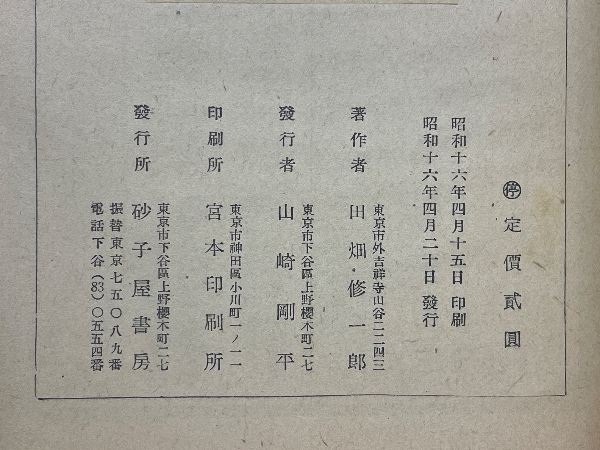 ㊡定價貳圓
昭和十六年四月十五日 印刷
昭和十六年四月二十日 發行
東京市外吉祥寺山谷二二四三
著作者 田畑修一郎
東京市下谷區上野櫻木町二七
發行者 山崎剛平
東京市神田區小川町一ノ一一
印刷所 宮本印刷所
東京市下谷區上野櫻木町二七
發行所 砂子屋書房
振替東京七五〇八九番
電話下谷(83)〇五五四番